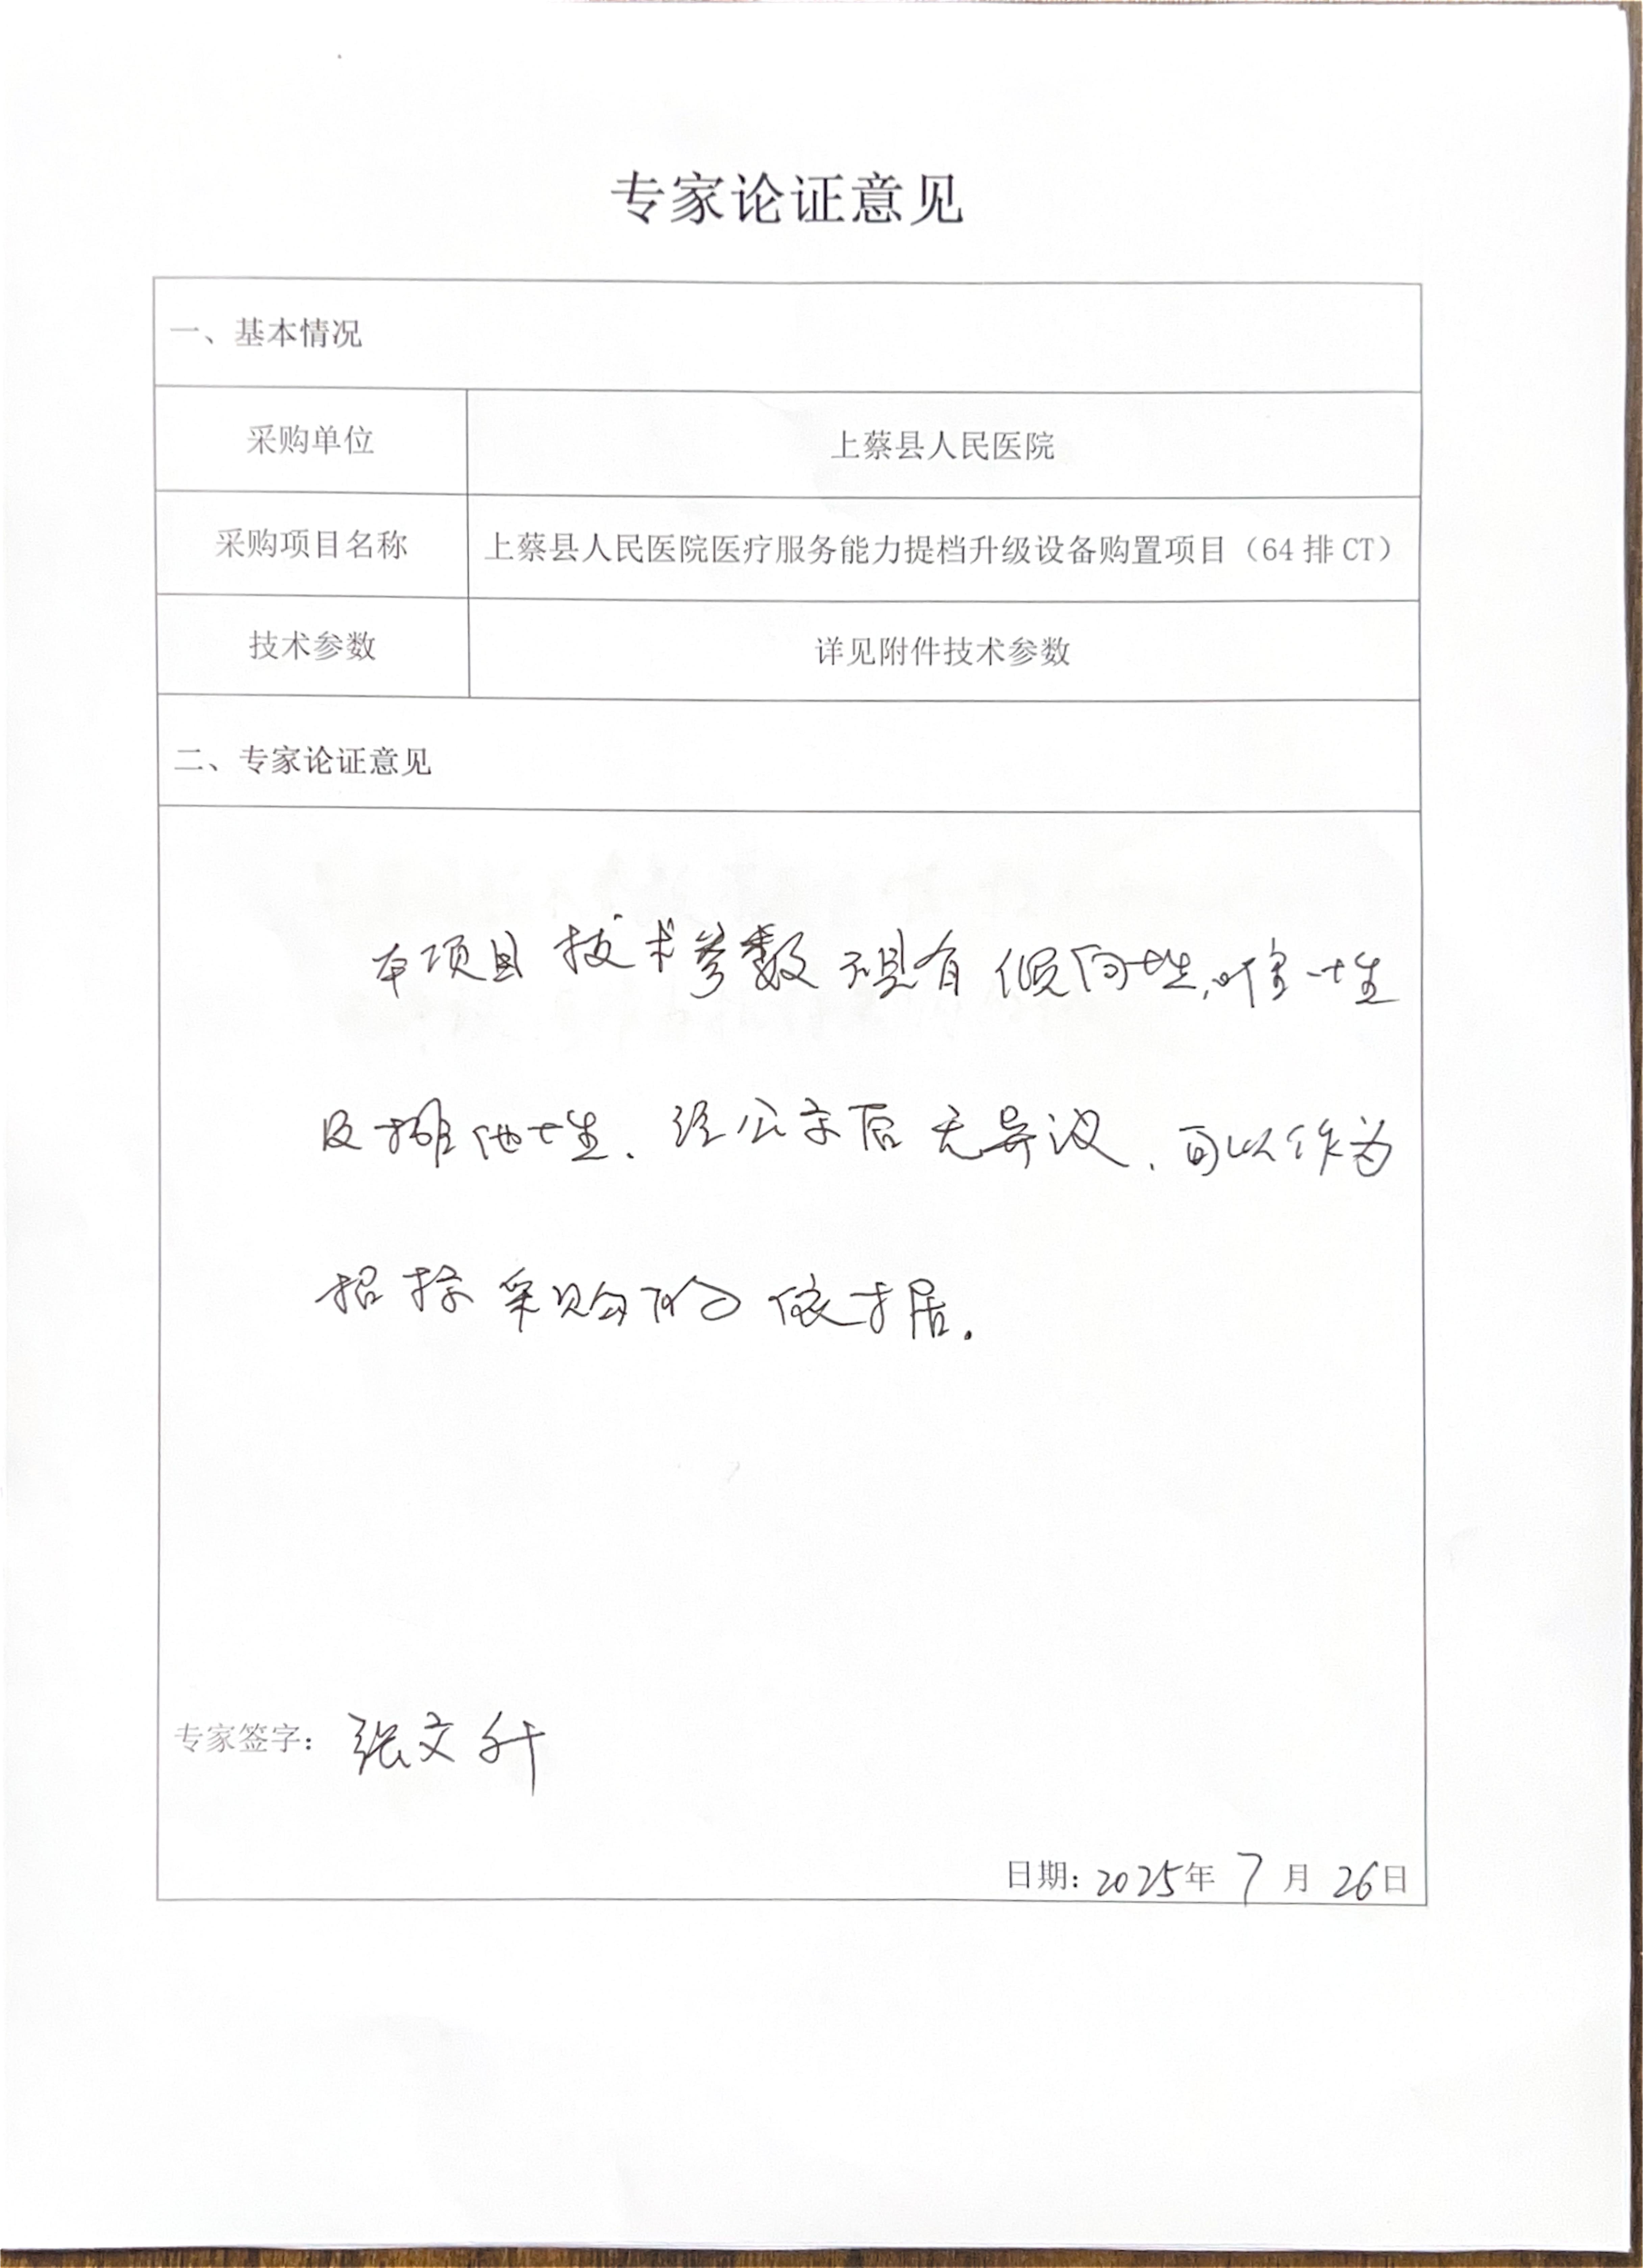 专家论证意见
一、基本情况
采购单位 上蔡县人民医院
采购项目名称 上蔡县人民医院医疗服务能力提档升级设备购置项目（64排CT）
技术参数 详见附件技术参数
二、专家论证意见
本项目技术参数不具有倾向性,唯一性
及排他性、经公示后无异议、可以作为
招标采购的依据.
专家签字：张文升
日期：2025年7月26日